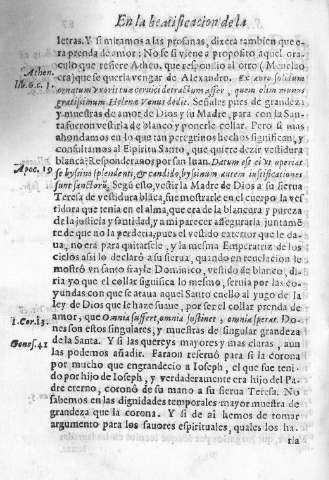 En la beatificacion de la
letras. Y si miramos a las profanas, dixera tambien que o-
ra prenda de amor: No se si viene a proposito aquel ora-
Athen. culo que refiere Atheu. que respondio al otro (Menelao
lib. 6. c. 1. era) que se queria vengar de Alexandro. Ex auro solidum
ornatum vxoris tuæ cervici detractum affer, quem olim munus
gratissimum Helenæ Venus dedit. Señales pues de grandeza
y muestras de amor de Dios y su Madre, para con la San-
ta fueron vestirla de blanco y ponerle collar. Pero si mas
ahondamos en lo que tan peregrinos hechos significam, y
consultamos al Espiritu Santo, que quiere dezir vestidura
Apoc. 19 blanca; Respondera nos por san Iuan. Datum est ei vt operiat
se byssino splendenti, & candido, byssinum autem iustificationes
sunt sanctorũ. Segũ esto, vestir la Madre de Dios a su sierua
Teresa de vestidura blãca, fue mostrarle en el cuerpo la vesti
dura que tenia en el alma, que era de la blancura y pureza
de la justicia y santidad, y a mi parecer assegurarla juntamẽ-
te de que no la perderia; pues el vestido exterior que le da-
ua, no era para quitarsele, y la mesma Emperatriz de los
cielos assi lo declarò a su sierua, quando en reuelacion le
mostrò vn santo frayle Dominico, vestido de blanco, di-
ria yo que el collar significa lo mesmo, seruia por las co-
yundas con que se ataua aquel Santo cuello al yugo de la
ley de Dios que le haze suaue, por ser el collar prenda de
1. Cor. 13. amor, que Omnia suffert, omnia sustinet, omnia sperat. Do-
nes son estos singulares, y muestras de singular grandeza
Genes. 41 de la Santa. Y si las quereys mayores y mas claras, aun
las podemos añadir. Faraon reseruò para si la corona
por mucho que engrandecio a Ioseph, el que fue teni-
do por hijo de Ioseph, y verdaderamente era hijo del Pa-
dre eterno, coronò de su mano a su sierua Teresa. No
sabemos en las dignidades temporales mayor muestra de
grandeza que la corona. Y si de ai hemos de tomar
argumento para los fauores espirituales, quales los ha-
ria